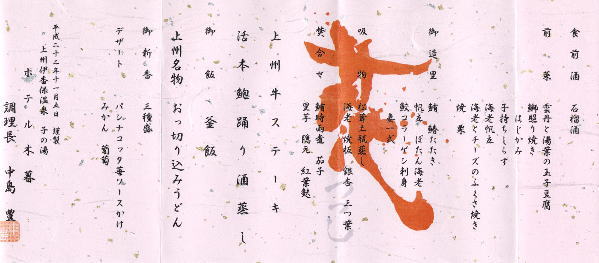 食前酒 石榴酒
前菜 雲丹と湯葉の玉子豆腐
鰤照り焼き
はじかみ
子持ちしらす
海老帆立
海老とチーズのふくさ焼き
焼栗
御造里 鮪 鰆たたき
帆立 ぼたん海老
鮫コラーゲン刺身
妻一式
吸物 松茸土瓶蒸し
海老 焼湯葉 銀杏 三つ葉
焚合せ 鯖時雨煮 茄子
里芋 隠元 紅葉麩
上州牛ステーキ
活本鮑踊り酒蒸し
御飯 釜飯
上州名物 おっ切り込みうどん
御新香 三種盛
デザート パンナコッタ苺ソースかけ
みかん 葡萄
平成二十三年十一月五日 謹製
上州伊香保温泉 子の湯
ホテル木暮
調理長 中島 豊